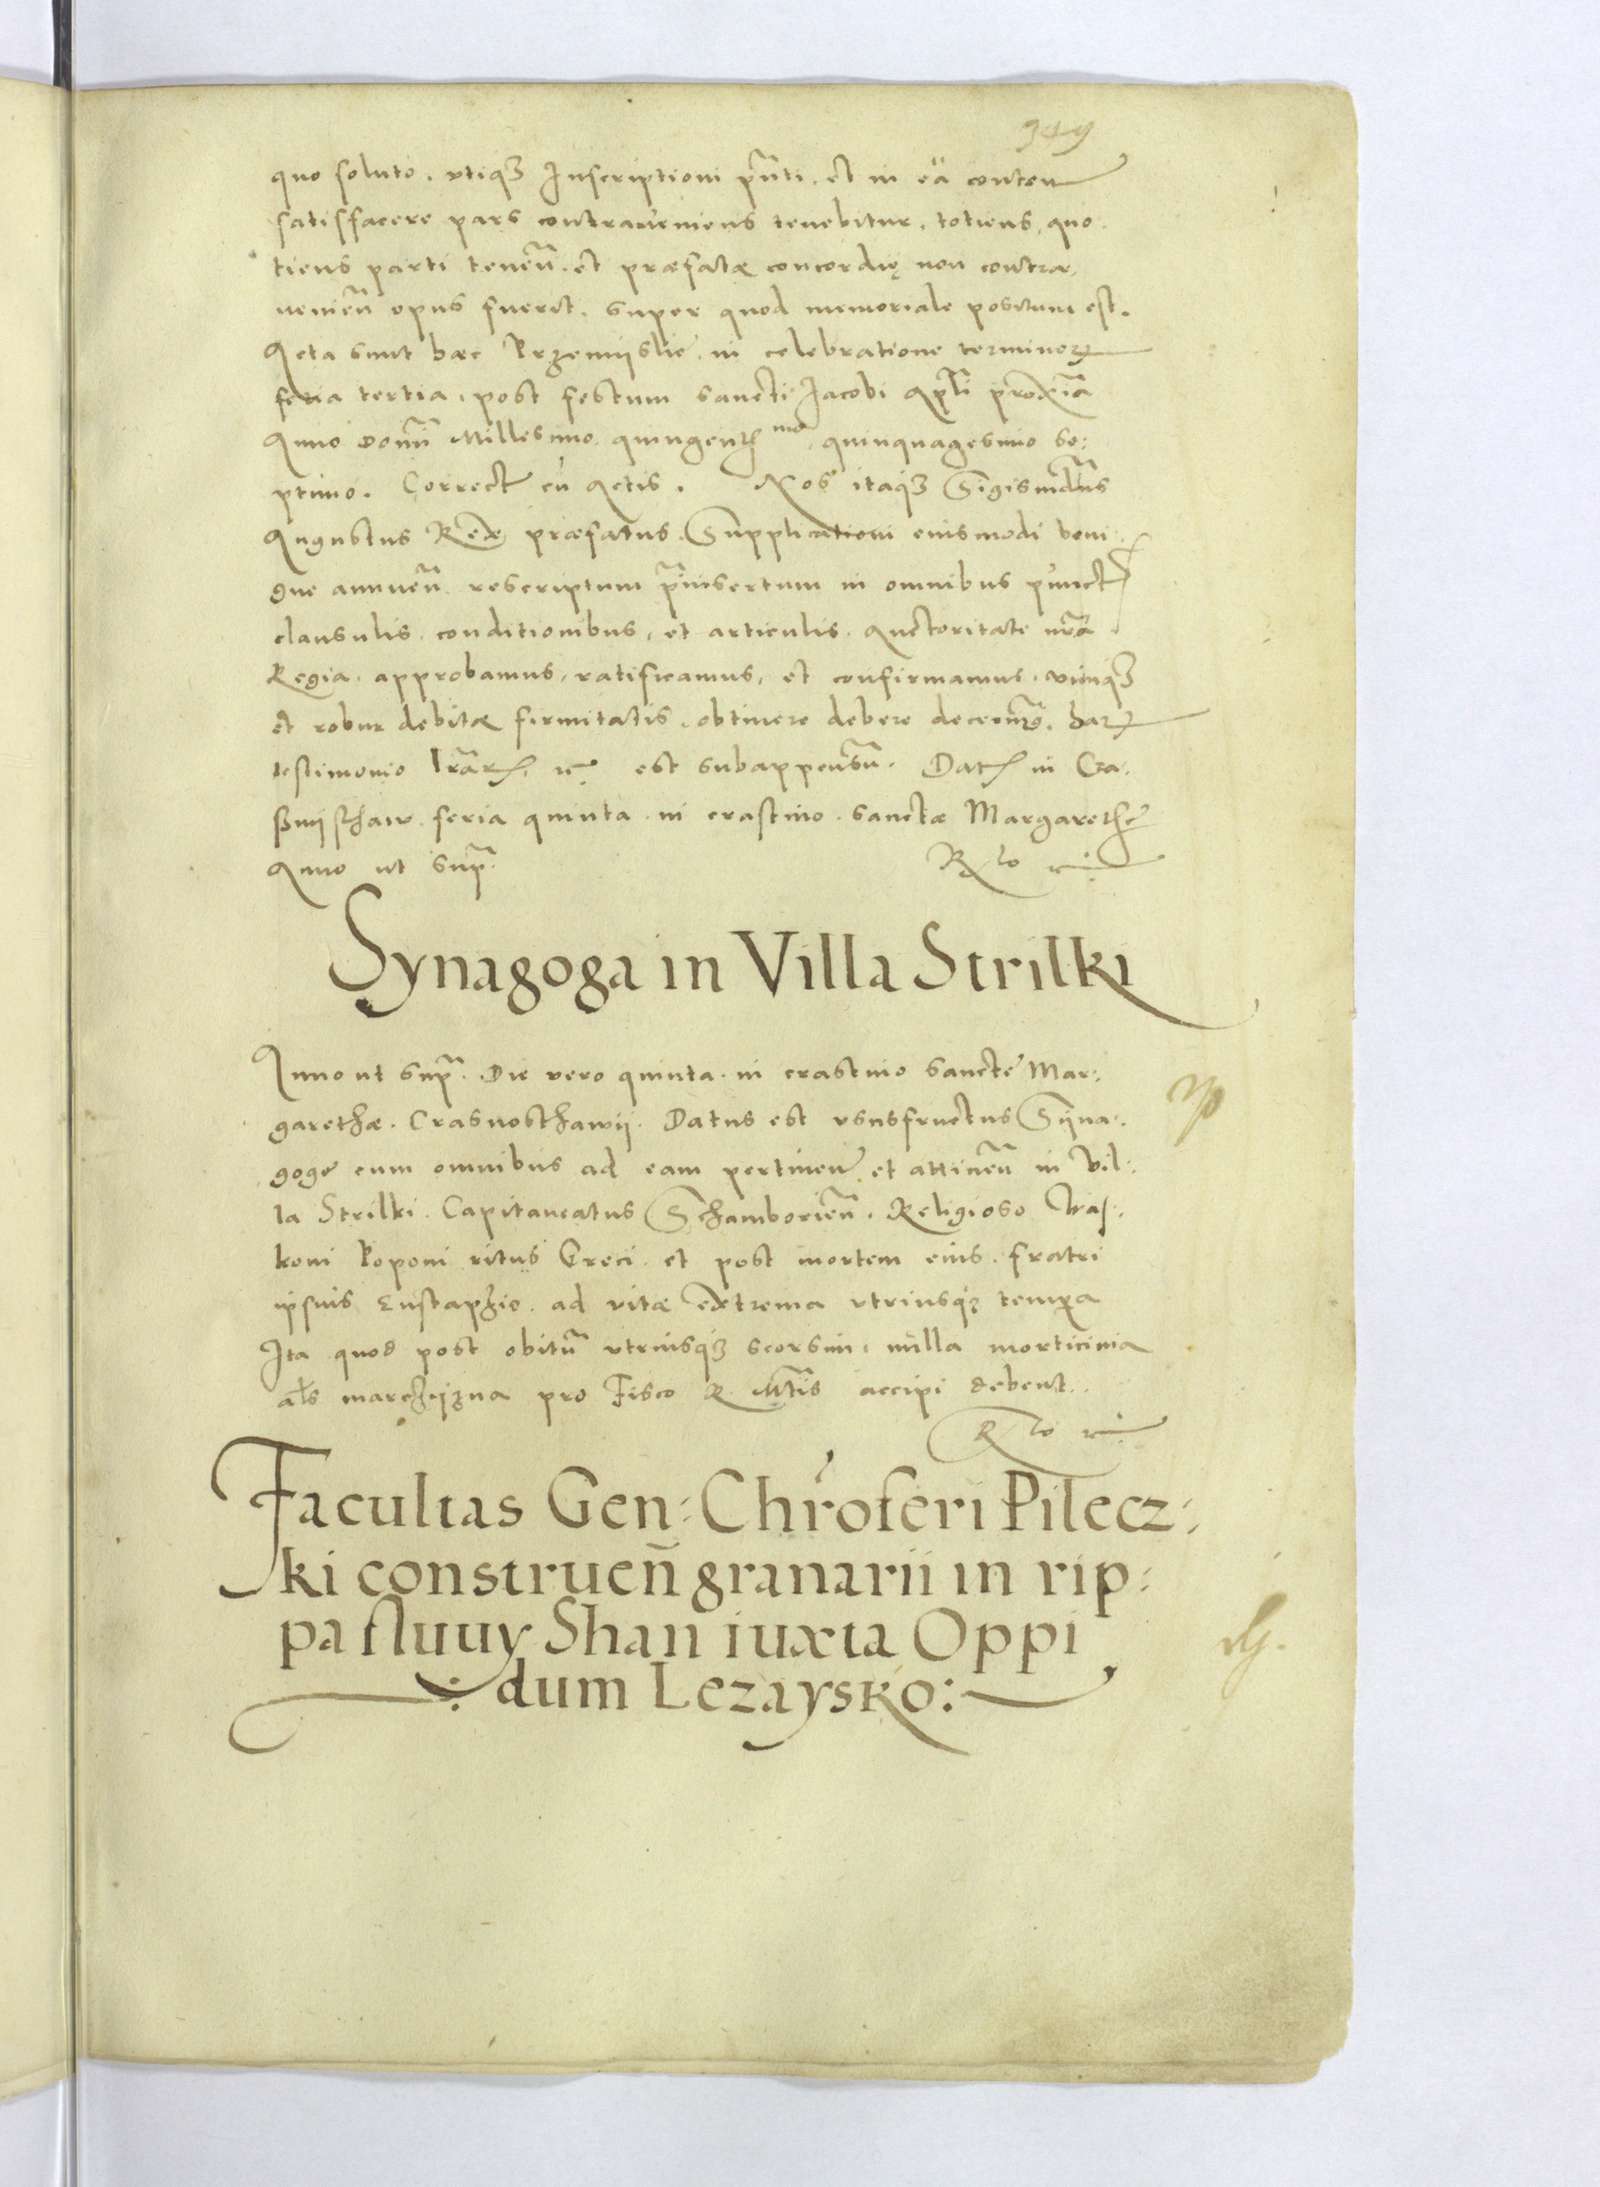 349
quo soluto, vtiqꝫ Inscriptioni pñti, et in ea conten
satisfacere pars contraveniens tenebitur, totiens, quo
tiens parti teneñ, et præfatæ concordię non contra,
venieñ opus fuerit, super quod memoriale positum est.
Acta sunt hæc Przemijslie, in celebratione terminoꝝ
feria tertia, post festum sancti Jacobi Apłi proxīa
Anno domīi Millesimo quingentmo, quinquagesimo se:
ptimo. Correct cū Actis. Nos itaqꝫ Sigismdūs
Augustus Rex præfatus Supplicationi eiusmodi beni,
gne annueñ rescriptum p̄insertum in omnibus punct
clausulis, conditionibus, et articulis, Auctoritate nr̃a
Regia, approbamus, ratificamus, et confirmamus, vimqꝫ
et robur debitæ firmitatis, obtinere debere decernim9, harꝝ
testimonio lr̃arꝝ, est subappensū. Dat in Cra,
ssnijsthaw, feria quinta, in crastino sanctæ Margarethe
Anno ut supr̃ Rlo
Synagoga in Villa Strilki
Anno ut supr̃. Die vero quinta, in crastino sanctę Mar:
garethæ. Crasnosthawij. Datus est vsusfructus Sijna:
gogę cum omnibus ad eam pertinen et attineñ in Vil:
la Strilki, Capitaneatus Schamborieñ, Religioso Was:
koni Poponi ritus Greci, et post mortem eius, fratri
ipsius Eustaphio, ad vitæ extrema vtriusqꝫ tempa
Ita quod post obitū vtriusqꝫ seorsim, nulla morticinia
als marchijzna pro Fisco R Mtis accipi debent.
Rlo
Facultas Gen: Chr̃oferi Pilecz:
ki construeñ granarii in rip:
pa fluuy Shan iuxta Oppi
dum Lezaysko: